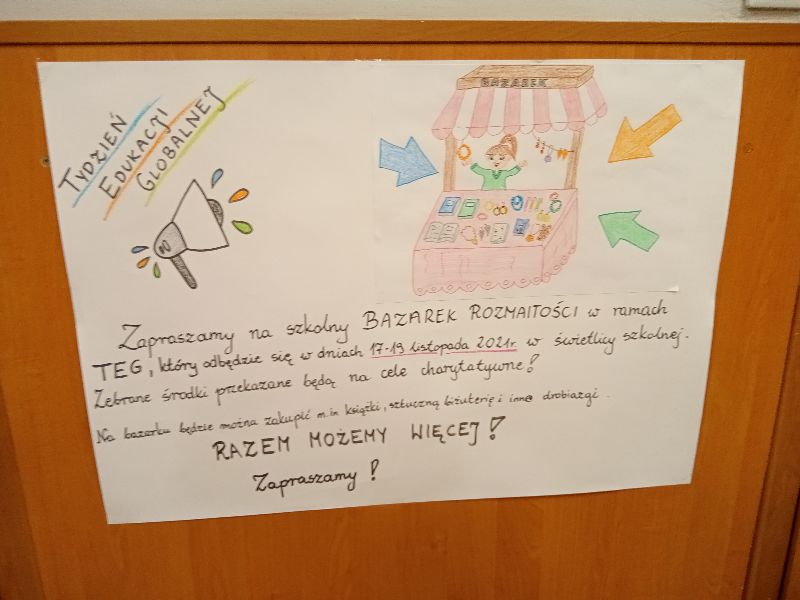 TYDZIEŃ
EDUKACJI
GLOBALNEJ
BAZAREK
Zapraszamy na szkolny BAZAREK ROZMAITOŚCI w ramach
TEG, który odbędzie się w dniach 17-19 listopada 2021r. w świetlicy szkolnej.
Zebrane środki przekazane będą na cele charytatywne!
Na bazarku będzie można zakupić m.in książki, sztuczną biżuterię i inne drobiazgi.
RAZEM MOŻEMY WIĘCEJ!
Zapraszamy!